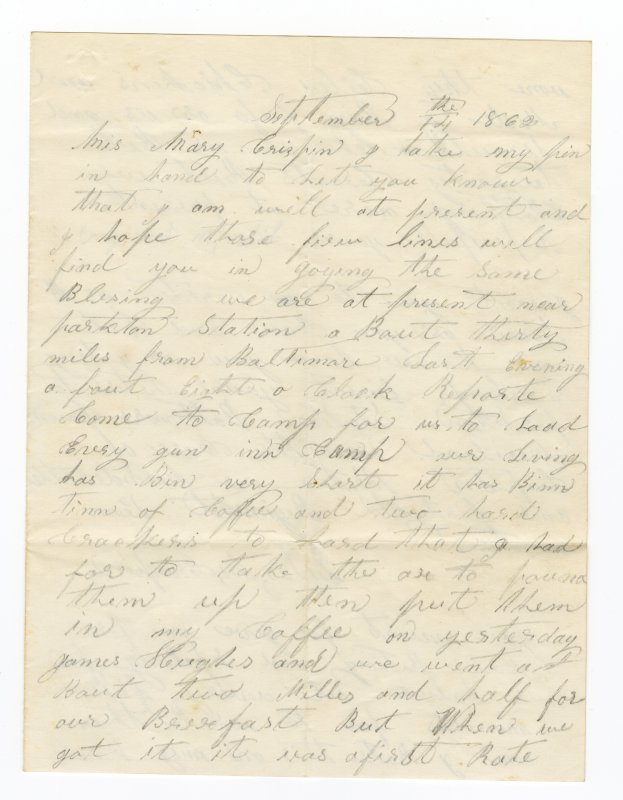 September the 14 1862
Mis Mary Crispin I take my pen
in hand to Let you know
that I am well at present and
I hope those fiew lines will
find you in goying the Same
Blesing we are at present near
parkton Station a Bout thirty
miles from Baltimore Last Evening
a fout Eight o Clock Reporte
Come to Camp for us to Load
Every gun inn Camp our Living
has Bin very Short it has Binn
tinn of Coffee and two hard
Craokers so hard that I had
for to take the ax to pound
them up then put them
in my Coffee on yesterday
games Hughes and we went a
Bout two Milles and half for
our Breefast But When we
got it it was afirst Rate